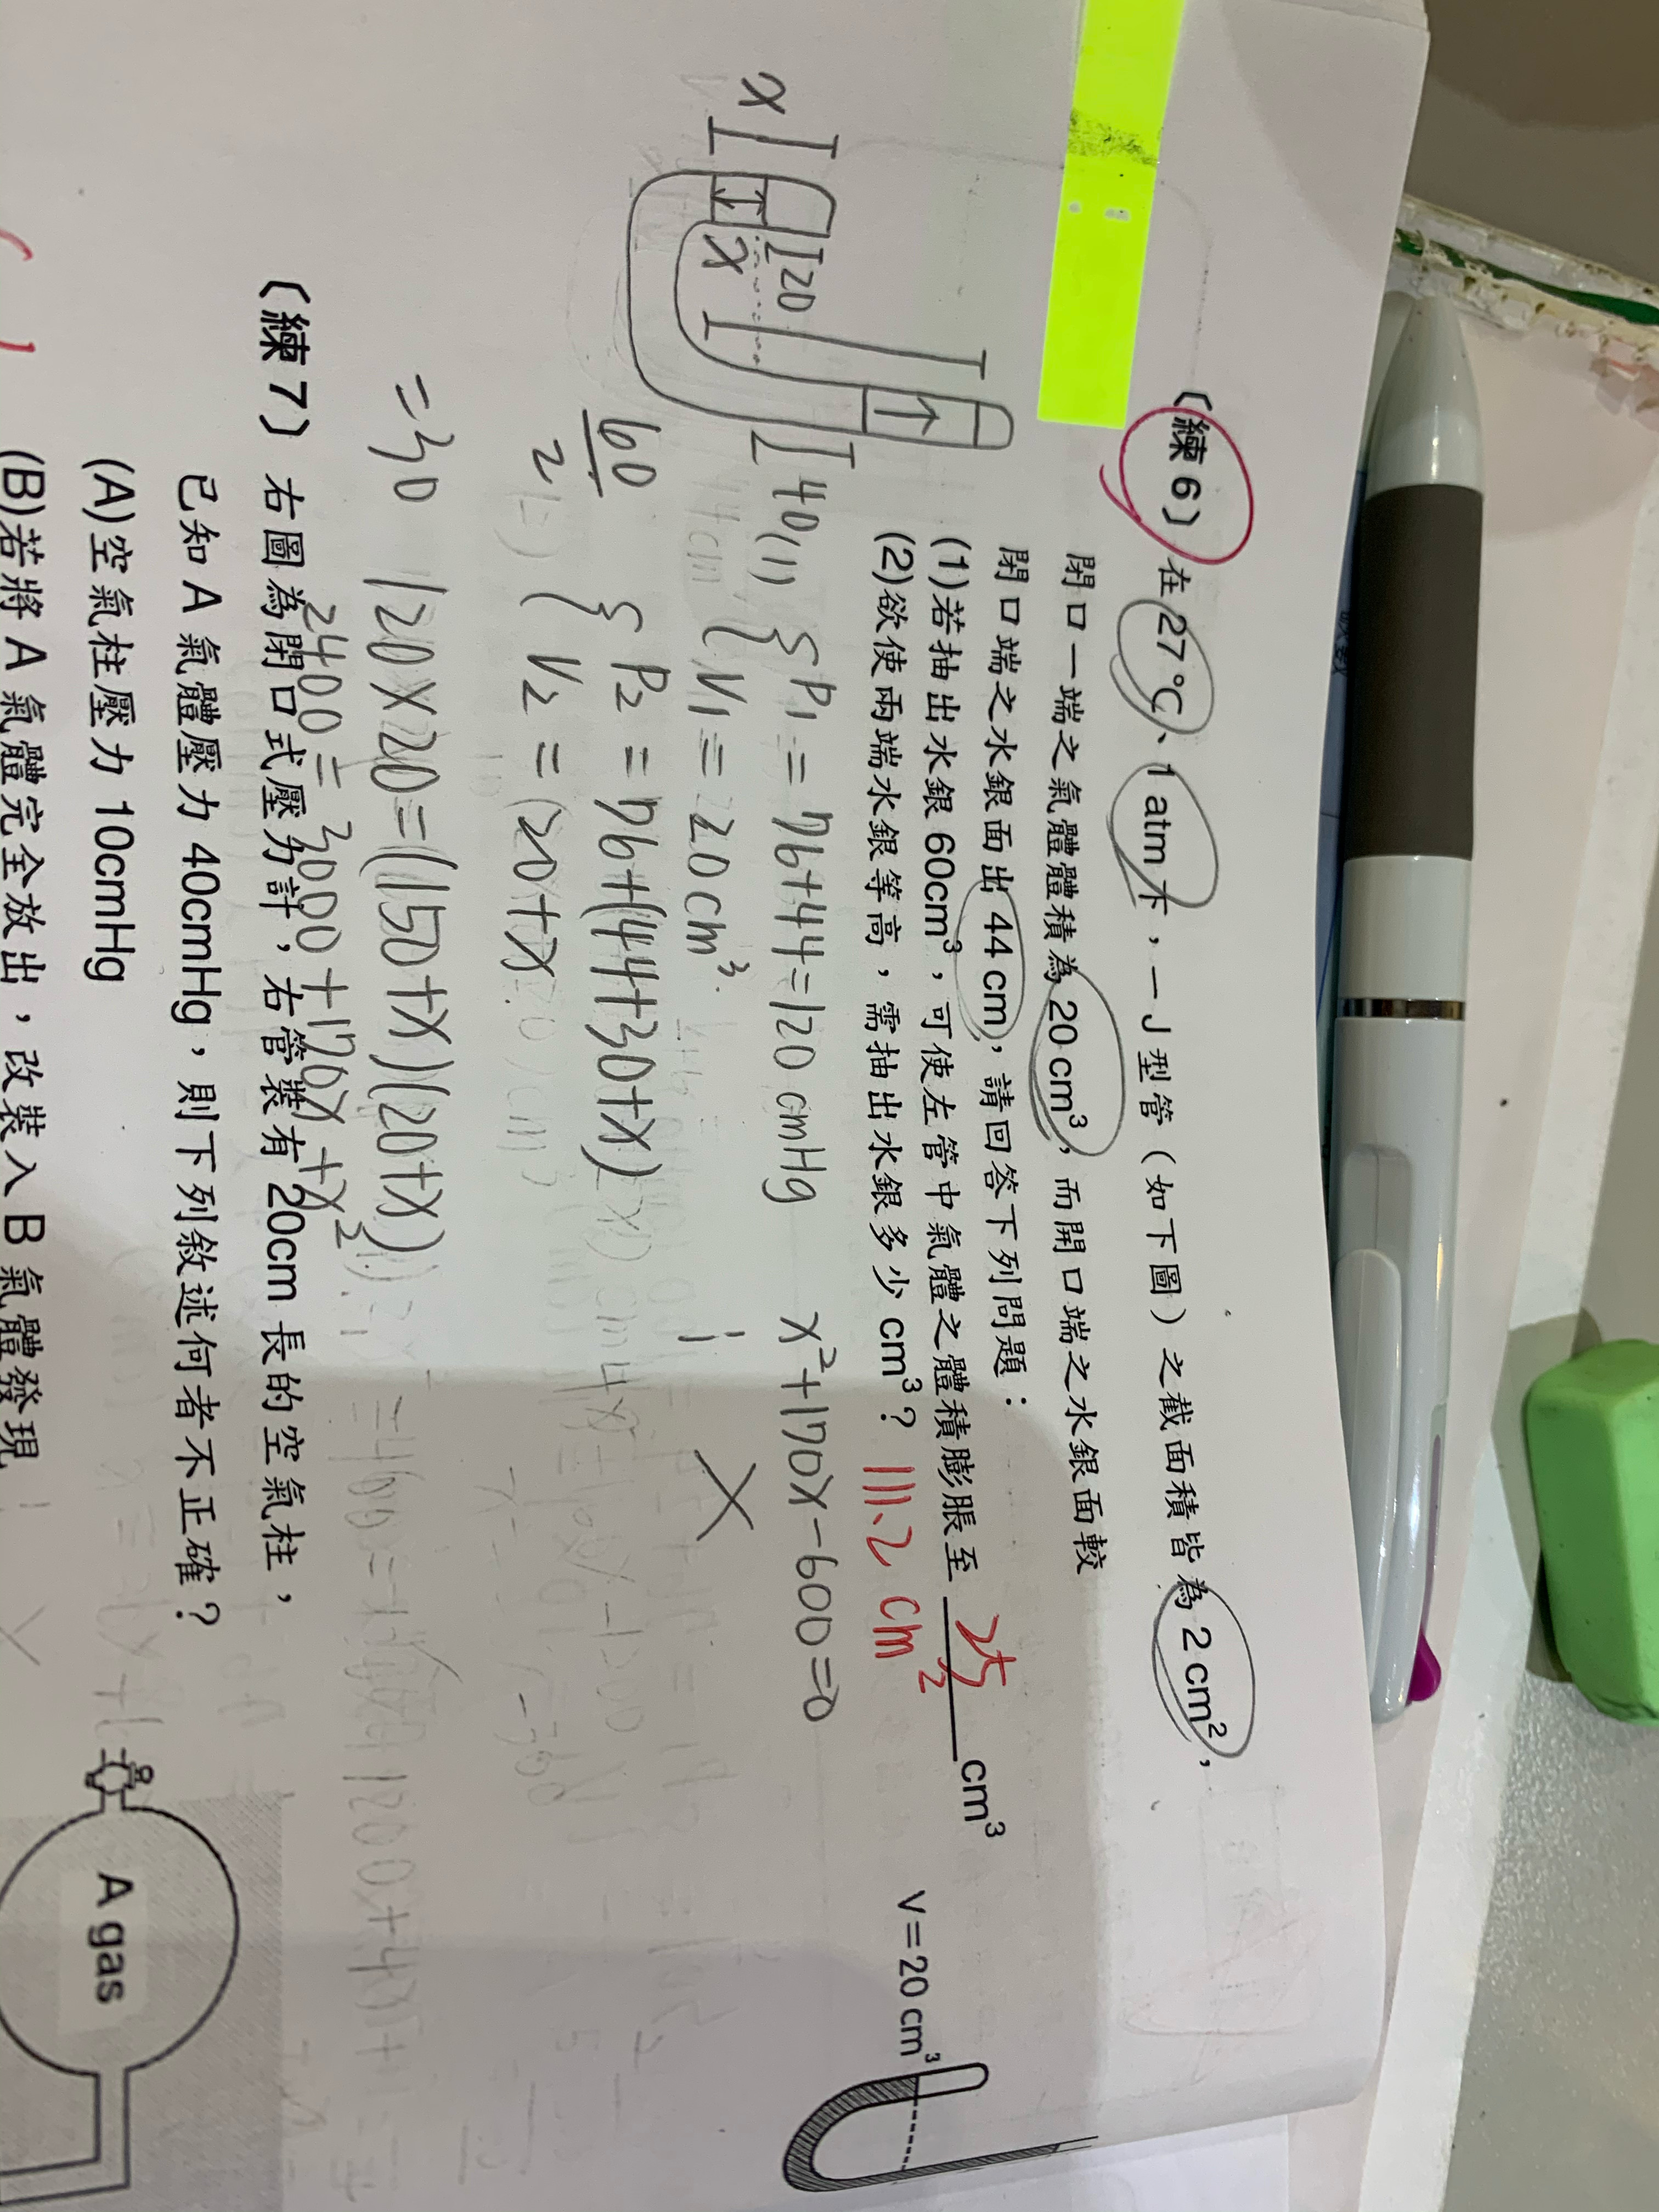 (練6) 在27℃、1 atm下，一J型管（如下圖）之截面積皆為2 cm²，
閉口一端之氣體體積為20 cm³，而開口端之水銀面較
閉口端之水銀面出44 cm，請回答下列問題：
(1)若抽出水銀60cm³，可使左管中氣體之體積膨脹至 25 cm³
(2)欲使兩端水銀等高，需抽出水銀多少cm³？ 111.2 cm²
V=20 cm³
x
20
x
40
(1) { P₁ = 76+44=120 cmHg
V₁ = 20 cm³.
x²+170x-600=0
{ P₂ = 76+(44+30+x)
V₂ = (20+x
60/2
=30
120×20=(150+x)(20+x)
2400=3000+170x+x²
(練7) 右圖為閉口式壓力計，右管裝有20cm長的空氣柱，
已知A氣體壓力40cmHg，則下列敘述何者不正確？
(A)空氣柱壓力10cmHg
(B)若將A氣體完全放出，改裝入B氣體發現
A gas